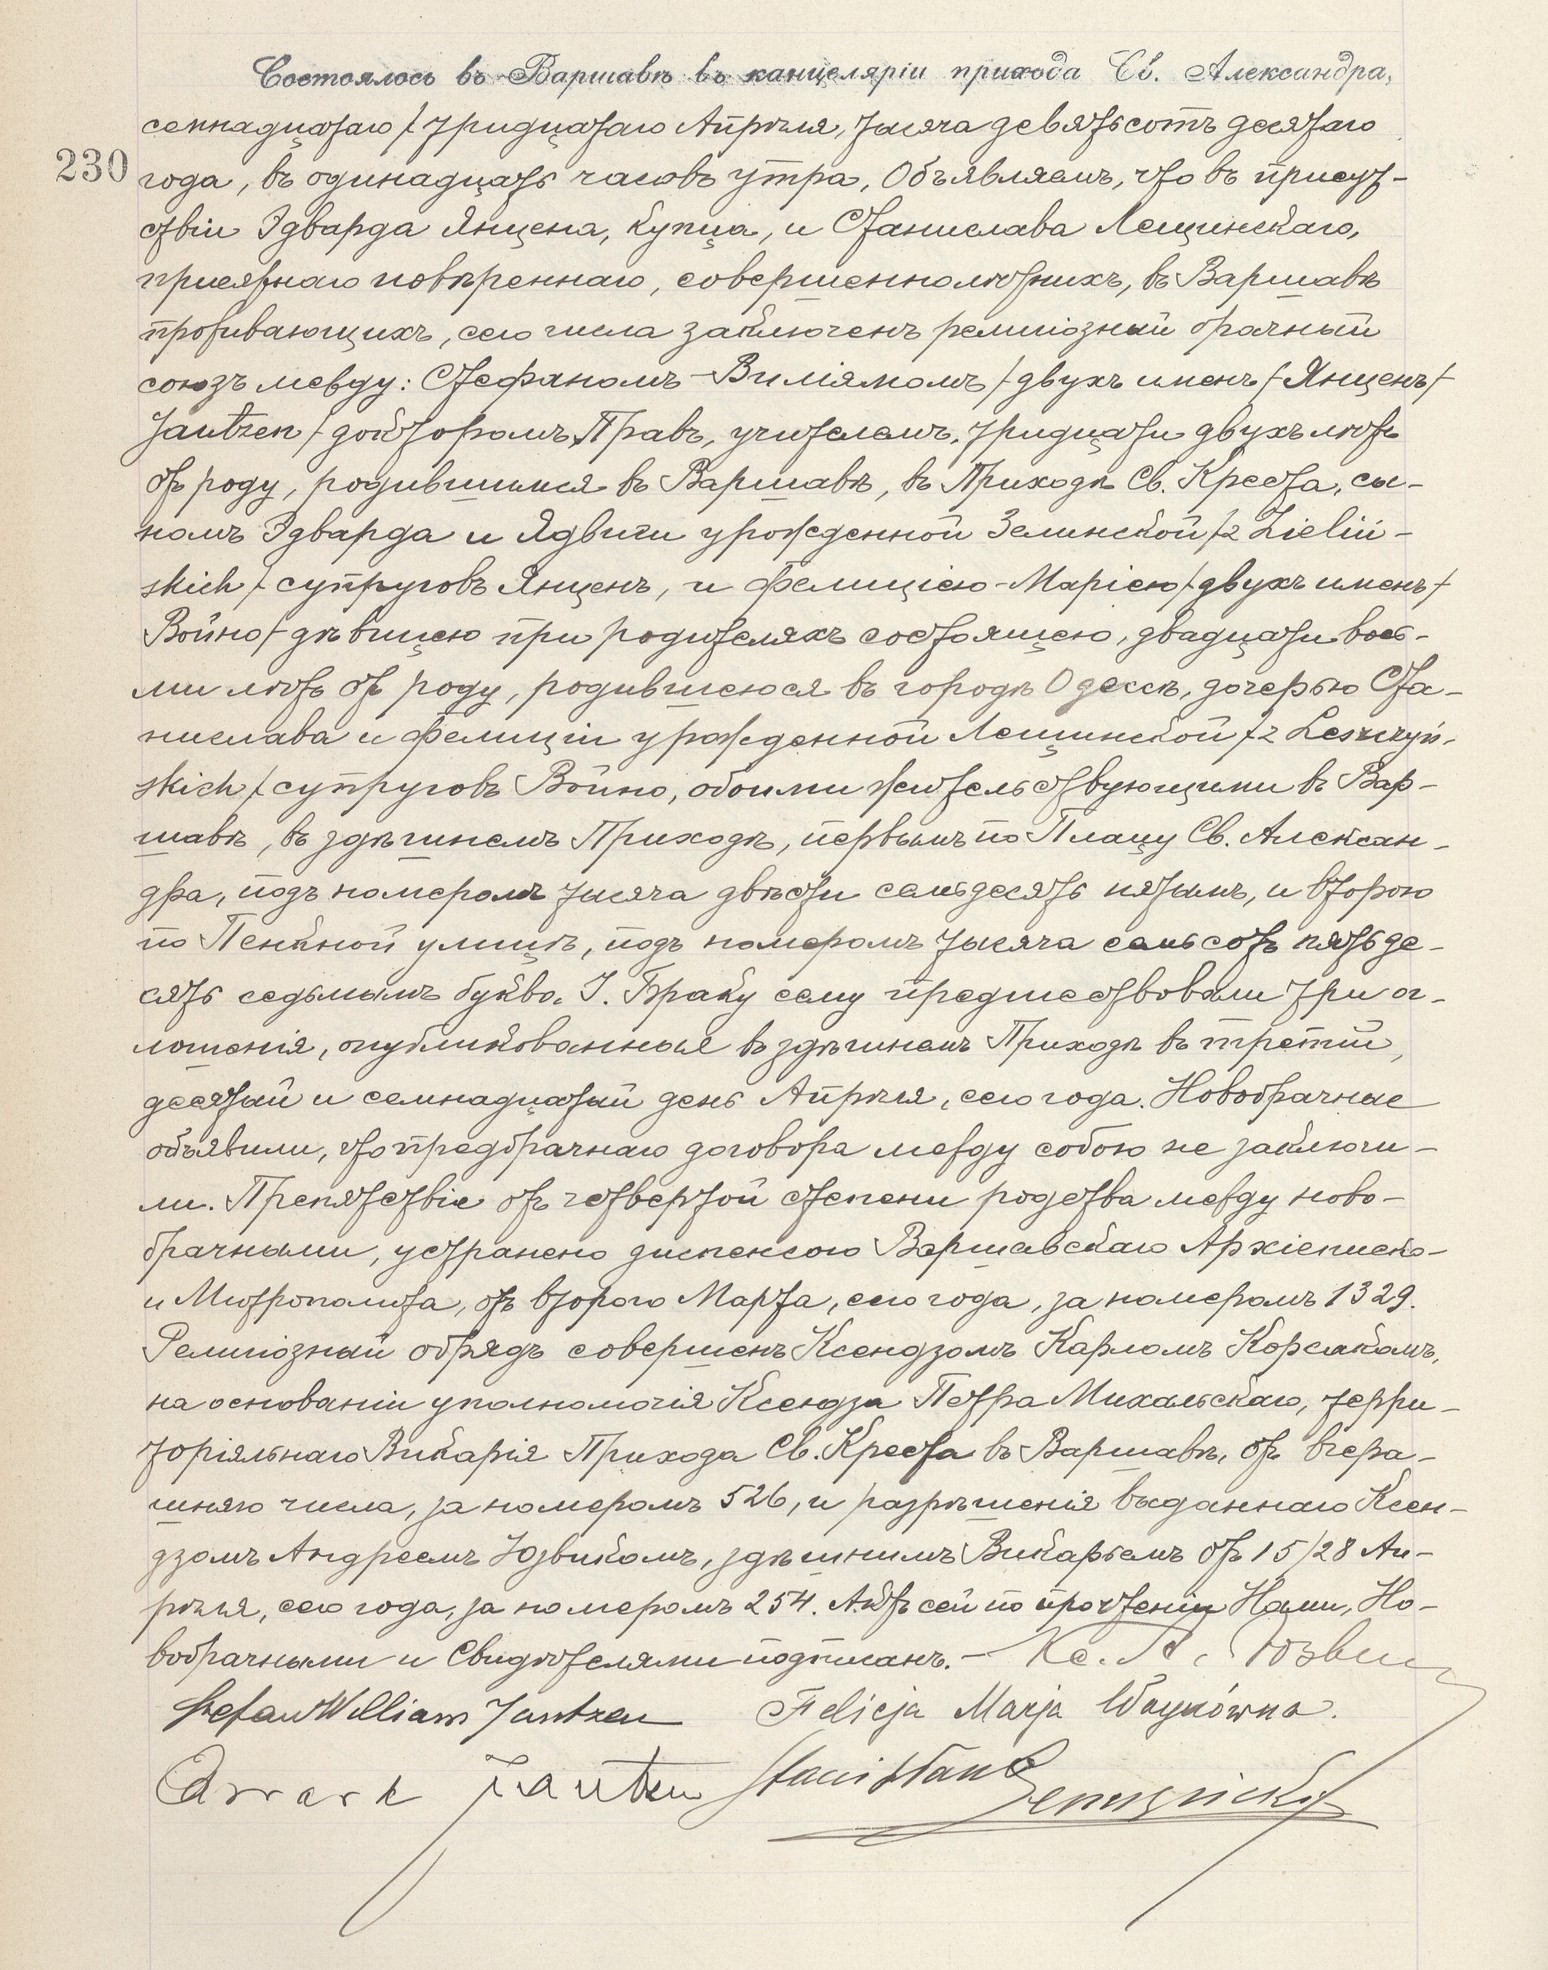 Состоялось въ Варшавѣ въ канцеляріи прихода Св. Александра,
семнадцатаго / тридцатаго Апрѣля, тысяча девятьсотъ десятаго
230 года, въ одинадцать часовъ утра, Объявляемъ, что въ присут-
ствіи Эдварда Янцена, купца, и Станислава Лещинскаго,
присяжнаго повѣреннаго, совершеннолѣтнихъ, въ Варшавѣ
проживающихъ, сего числа заключенъ религіозный брачный
союзъ между: Стефаномъ-Виліямомъ / двухъ именъ / Янценъ /
Jantzen / докторомъ Правъ, учителемъ, тридцати двухъ лѣтъ
отъ роду, родившимся въ Варшавѣ, въ Приходѣ Св. Креста, сы-
номъ Эдварда и Ядвиги урожденной Зелинской / z Zieliń-
skich / супруговъ Янценъ, и Фелиціею-Маріею / двухъ именъ /
Войно / дѣвицею при родителяхъ состоящею, двадцати вось-
ми лѣтъ отъ роду, родившеюся въ городѣ Одессѣ, дочерью Ста-
нислава и Фелиціи урожденной Лещинской / z Leszczyń-
skich / супруговъ Войно, обоими жительствующими въ Вар-
шавѣ, въ здѣшнемъ Приходѣ, первымъ по Плацу Св. Алексан-
дра, подъ номеромъ тысяча двѣсти семьдесять пятымъ, и второю
по Пенкной улицѣ, подъ номеромъ тысяча семьсотъ пятьде-
сять седьмымъ буква. I. Браку сему предшествовали три ог-
лошенія, опубликованныя въ здѣшнемъ Приходѣ въ третій,
десятый и семнадцатый день Апрѣля, сего года. Новобрачные
объявили, что предбрачнаго договора между собою не заключи-
ли. Препятствіе отъ четвертой степени родства между ново-
брачными, устранено диспенсою Варшавскаго Архіепископа-
и Митрополита, отъ втораго Марта, сего года, за номеромъ 1329.
Религіозный обрядъ совершенъ Ксендзомъ Карломъ Корсакомъ,
на основаніи уполномочія Ксендза Петра Михальскаго, терри-
торіяльнаго Викарія Прихода Св. Креста въ Варшавѣ, отъ вчера-
шняго числа, за номеромъ 526, и разрѣшенія выданнаго Ксен-
дзомъ Андреемъ Юзвикомъ, здѣшнимъ Викарьемъ отъ 15/28 Ап-
рѣля, сего года, за номеромъ 254. Актъ сей по прочтеніи Нами, Но-
вобрачными и Свидѣтелями подписанъ. – Кс. А. Юзвик
Stefan William Jantzen Felicja Marja Woynówna.
Edward Jantzen Stanisław Leszczyński